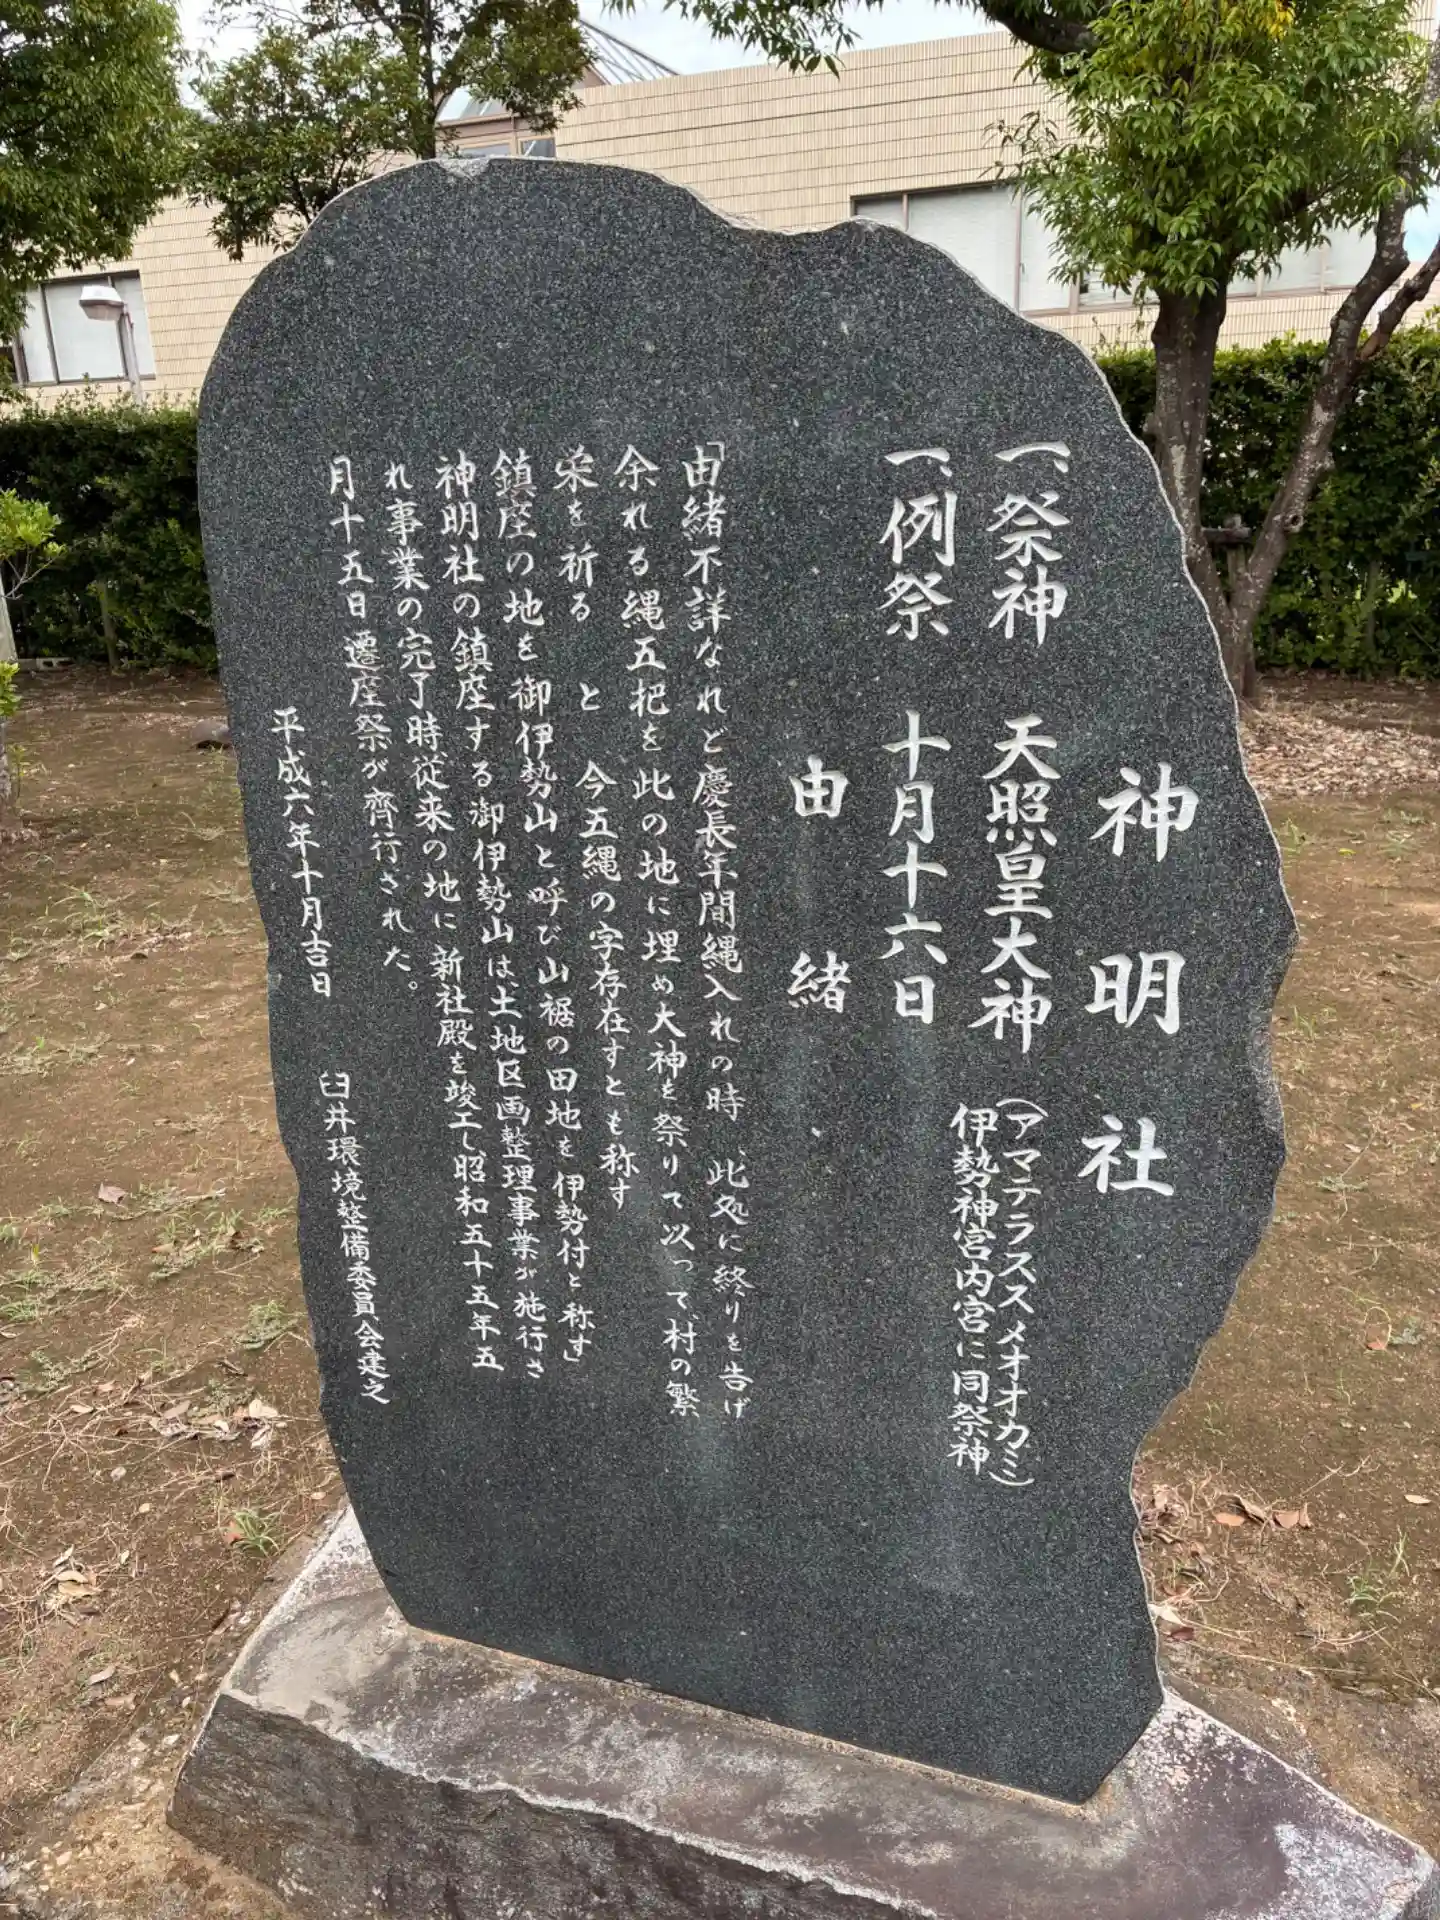 神明社
一、祭神 天照皇大神 (アマテラススメオオカミ)
伊勢神宮内宮に同祭神
一、例祭 十月十六日
由緒
「由緒不詳なれど慶長年間縄入れの時、此処に終りを告げ
余れる縄五把を此の地に埋め大神を祭りて以って、村の繁
栄を祈る と 今五縄の字存在すとも称す
鎮座の地を御伊勢山と呼び山裾の田地を伊勢付と称す」
神明社の鎮座する御伊勢山は、土地区画整理事業が施行さ
れ事業の完了時従来の地に新社殿を竣工し昭和五十五年五
月十五日遷座祭が齊行された。
平成六年十月吉日 臼井環境整備委員会建之